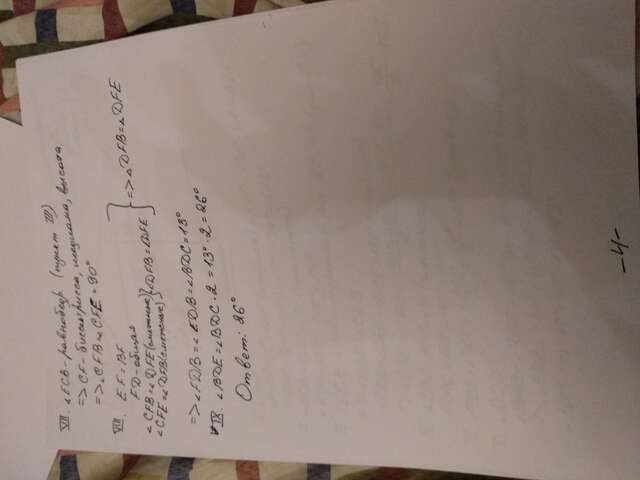 VII. ∠ECB-равнобедр. (пункт III)
=> CF-биссектрисса, медиана, высота.
=> ∠CFB=∠CFE=90°
VIII. EF=BF
FD-общая
∠CFB=∠DFE(смежные)
∠CFE=∠DFB(смежные) } ∠DFB=∠DFE } => △DFB=△DFE
=> ∠FDB=∠EDB=∠BDC=13°
IX. ∠BDE=∠BDC·2=13°·2=26°
Ответ: 26°
-4-